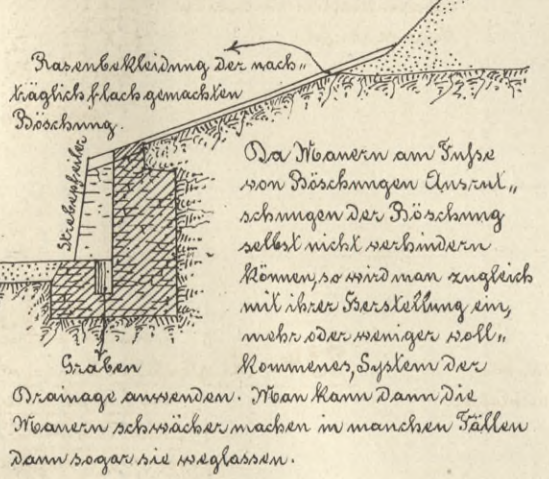 Rasenbekleidung der nach„
träglich flach gemachten
Böschung.
Strebepfeiler
Graben
Da Mauern am Fuße
von Böschungen Ausrut„
schungen der Böschung
selbst nicht verhindern
können, so wird man zugleich
mit ihrer Herstellung ein,
mehr oder weniger voll„
kommenes, System der
Drainage anwenden. Man kann dann die
Mauern schwächer machen in manchen Fällen
dann sogar sie weglassen.